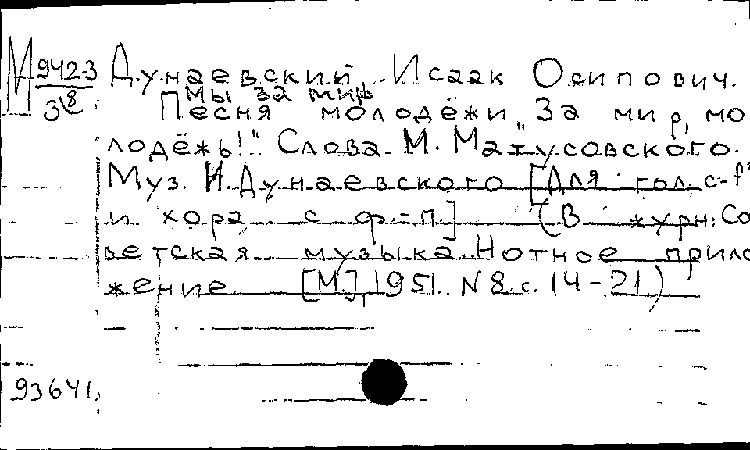 М 942-3 Дунаевский, Исаак Осипович.
3 8 Мы за мир
Песня молодёжи „За мир, мо
лодёжь!“ Слова М. Матусовского.
Муз. И. Дунаевского [Для гол. с-р
и хора с ф-п] (В журн: Со
ветская музыка. Нотное прило
жение [М], 1951. N 8. с. 14-21)
93641,